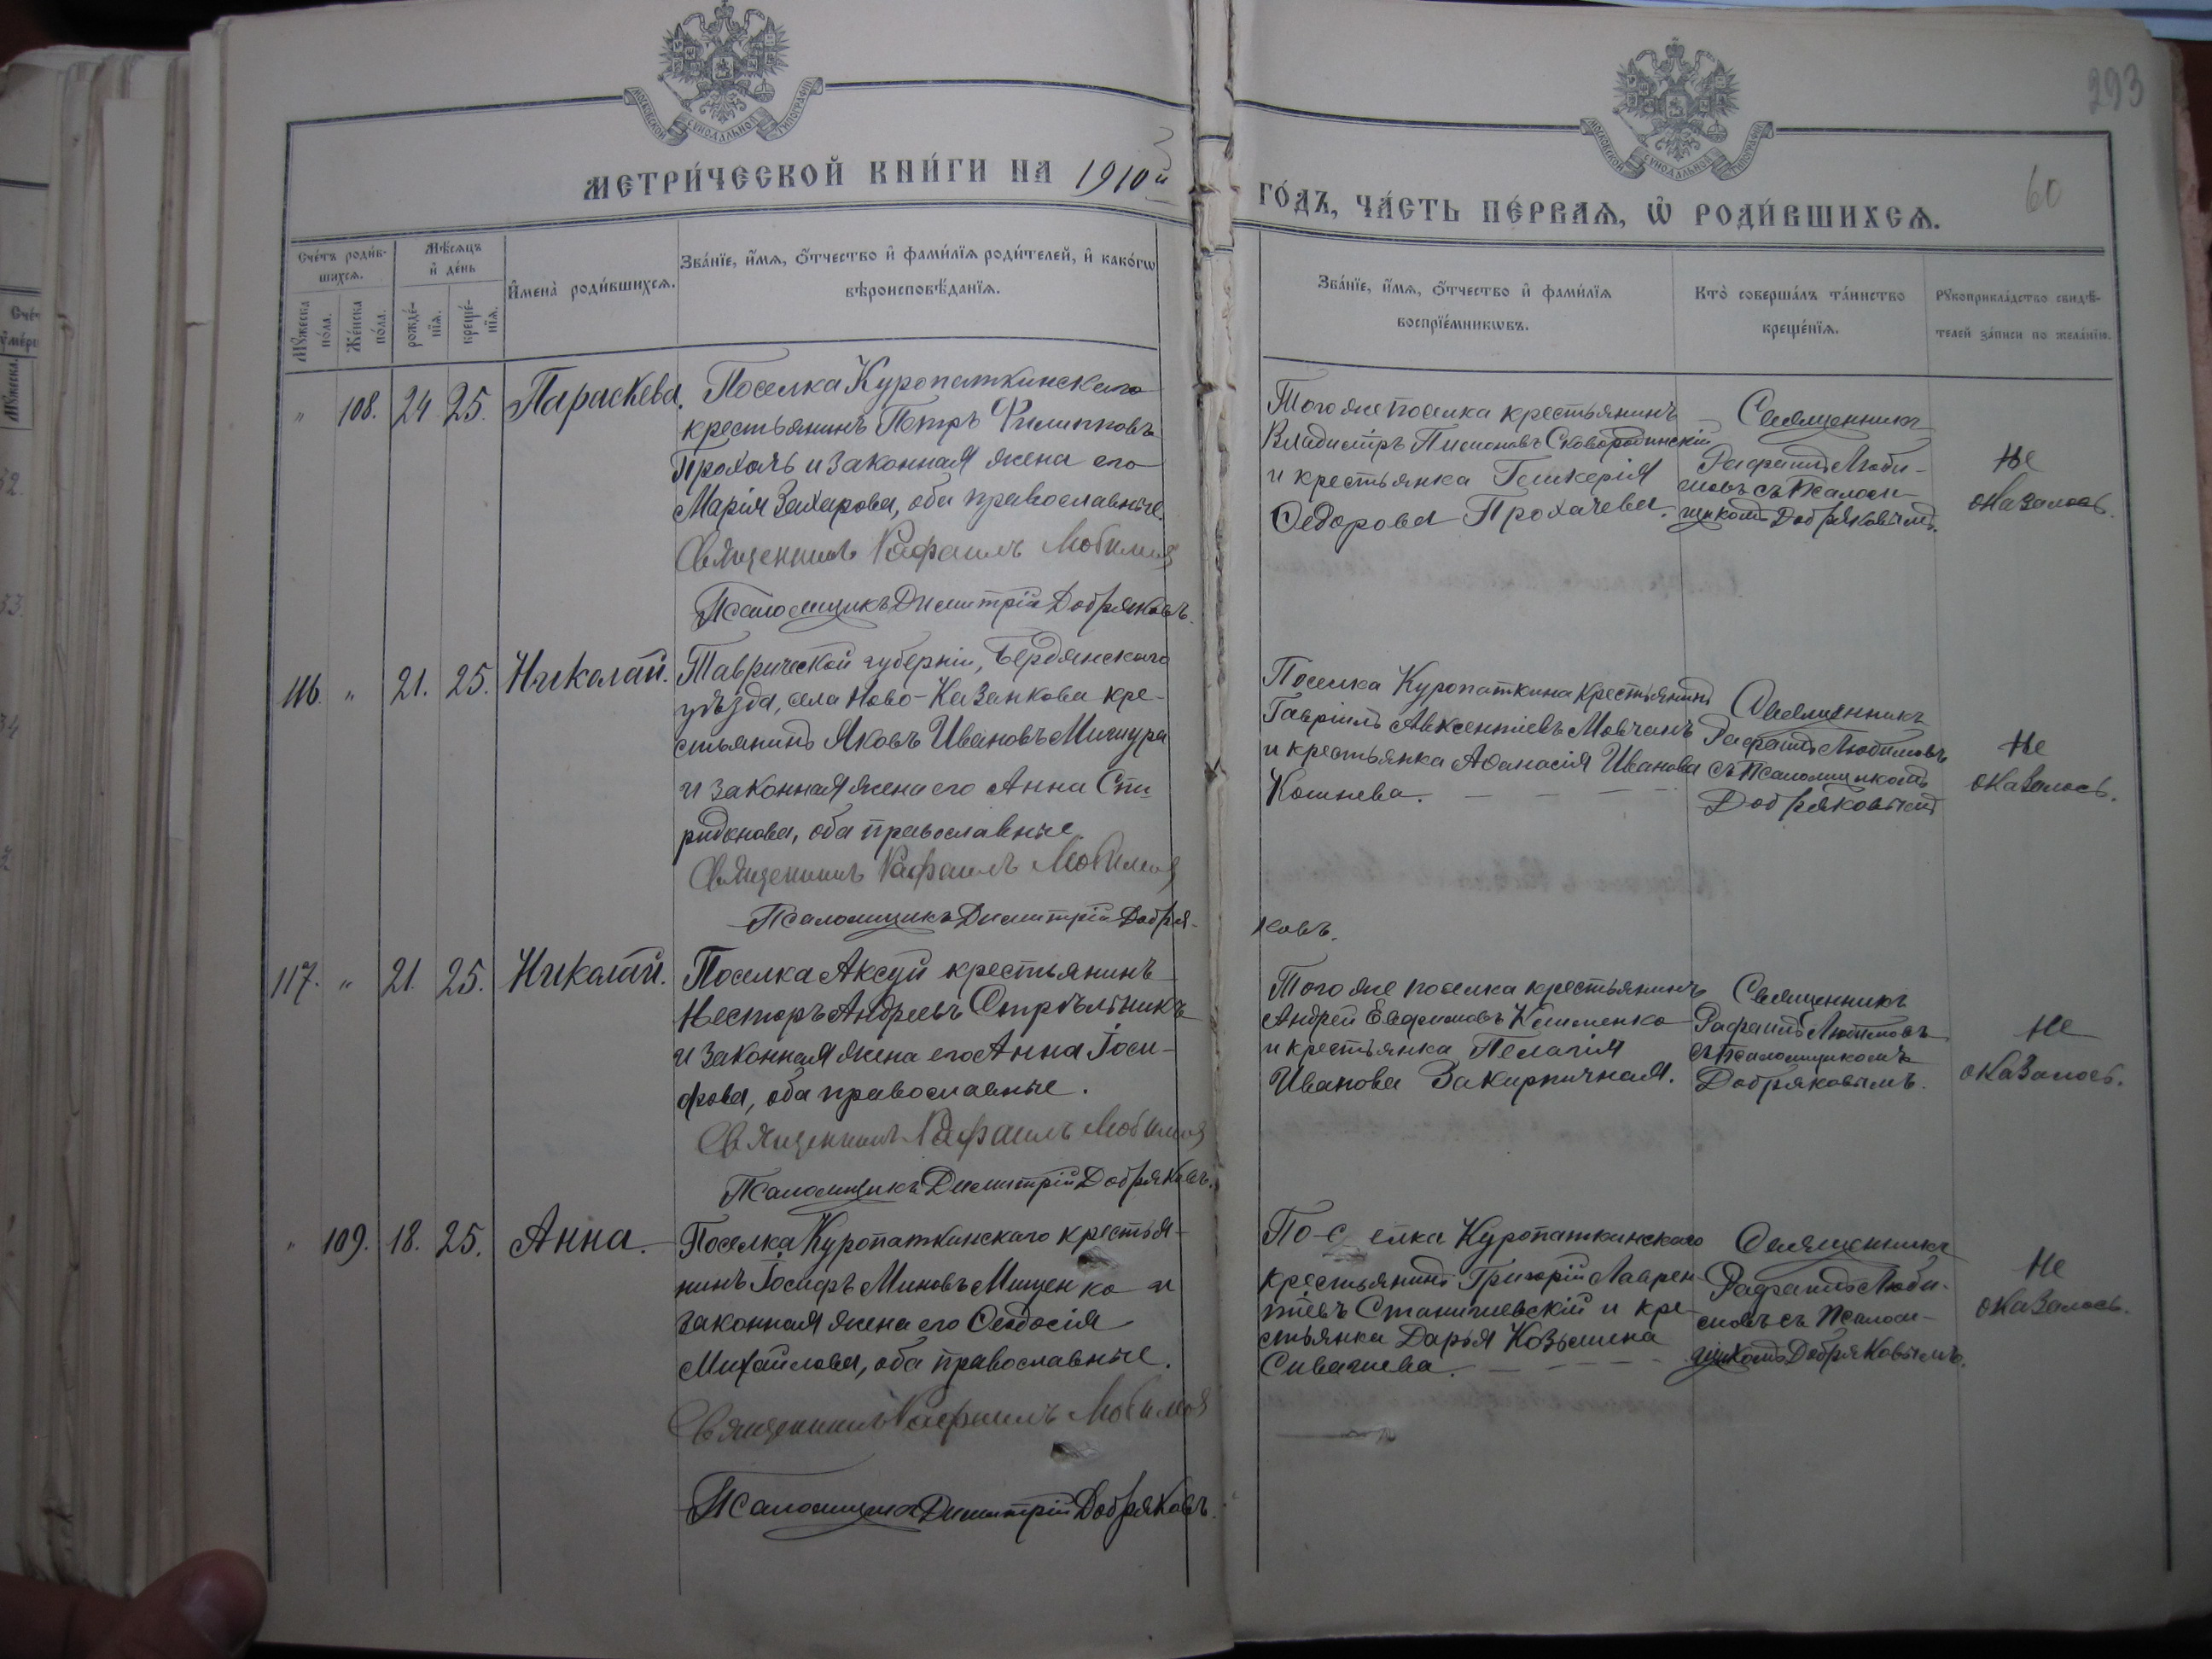 293
60
МОСКОВСКОЙ СѴНОДАЛЬНОЙ ТИПОГРАФІИ
МОСКОВСКОЙ СѴНОДАЛЬНОЙ ТИПОГРАФІИ
МЕТРИ́ЧЕСКОЙ КНИ́ГИ НА 1910й
ГО́ДЪ, ЧА́СТЬ ПЕ́РВАѦ, Ѡ РОДИ́ВШИХСѦ.
Сче́тъ роди́в-
шихсѧ.
Мꙋ́жеска
по́ла.
Же́нска
по́ла.
Мѣ́сѧцъ
и҆ де́нь
рожде́-
нїѧ.
креще́-
нїѧ.
И҆мена̀ роди́вшихсѧ.
Зва́нїе, и҆́мѧ, ѻ҆́тчество и҆ фами́лїѧ роди́телей, и҆ како́гѡ
вѣроисповѣ́данїѧ.
Зва́нїе, и҆́мѧ, ѻ҆́тчество и҆ фами́лїѧ
воспрїе́мникѡвъ.
Кто̀ соверша́лъ та́инство
креще́нїѧ.
Рꙋкоприкла́дство свидѣ́-
телей за́писи по жела́нїю.
" 108. 24 25. Параскева.
Поселка Куропаткинскаго
крестьянинъ Петръ Филипповъ
Прохачь и законная жена его
Марія Захарова, оба православные.
Священникъ Рафаилъ Любимов
Псаломщикъ Димитрій Добряковъ.
Того же поселка крестьянинъ
Владиміръ Сковородинскій
и крестьянка Гликерія
Ѳедорова Прохачева.
Священникъ
Рафаилъ Люби-
мовъ съ псалом-
щикомъ Добряковымъ.
Не
оказалось.
116. " 21. 25. Николай.
Таврической губерніи, Бердянскаго
уѣзда, села Ново-Казанкова кре-
стьянинъ Яковъ Ивановъ Мигура
и законная жена его Анна Спи-
ридонова, оба православные.
Священникъ Рафаилъ Любимов
Псаломщикъ Димитрій Добря-
ковъ.
Поселка Куропаткина крестьянинъ
Гавріилъ Авксентіевъ Мовчанъ
и крестьянка Аѳанасія Иванова
Кошнева.
Священникъ
Рафаилъ Любимовъ
съ псаломщикомъ
Добряковымъ
Не
оказалось.
117. " 21. 25. Николай.
Поселка Аксуй крестьянинъ
Несторъ Андреевъ Стрѣльникъ
и законная жена его Анна Іоси-
фова, оба православные.
Священникъ Рафаилъ Любимов
Псаломщикъ Димитрій Добряковъ.
Того же поселка крестьянинъ
Андрей Евфимовъ Клименко
и крестьянка Пелагія
Иванова Закирпичная.
Священникъ
Рафаилъ Любимовъ
съ псаломщикомъ
Добряковымъ.
Не
оказалось.
" 109. 18. 25. Анна.
Поселка Куропаткинскаго крестья-
нинъ Іосифъ Миновъ Мищенко и
законная жена его Ѳеодосія
Михайлова, оба православные.
Священникъ Рафаилъ Любимов
Псаломщикъ Димитрій Добряковъ.
По-с елка Куропаткинскаго
крестьянинъ Григорій Лаврен-
тіевъ Станишевскій и кре-
стьянка Дарья Козьмина
Сивачева.
Священникъ
Рафаилъ Люби-
мовъ съ псалом-
щикомъ Добряковымъ.
Не
оказалось.